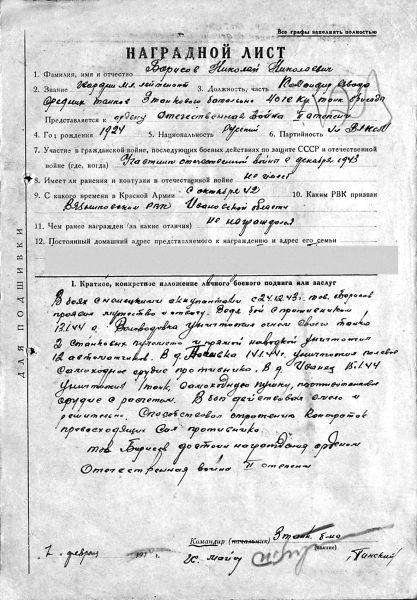 Все графы заполнять полностью
НАГРАДНОЙ ЛИСТ
1. Фамилия, имя и отчество Борисов Николай Николаевич
2. Звание гвардии мл. лейтенант 3. Должность, часть Командир взвода
средних танков 3 танкового батальона 40 танк. бригада
Представляется к ордену Отечественная Война II степени
4. Год рождения 1924 5. Национальность Русский 6. Партийность ВЛКСМ
7. Участие в гражданской войне, последующих боевых действиях по защите СССР и отечественной
войне (где, когда) Участник отечественной войны с декабря 1943
8. Имеет ли ранения и контузии в отечественной войне не имеет
9. С какого времени в Красной Армии с октября 42 10. Каким РВК призван
РВК Ивановской области
11. Чем ранее награжден (за какие отличия) не награждался
12. Постоянный домашний адрес представляемого к награждению и адрес его семьи
ДЛЯ ПОДШИВКИ
I. Краткое, конкретное изложение личного боевого подвига или заслуг
В боях с немецкими оккупантами с 24.12.43 г. тов. Борисов
проявил мужество и отвагу. Ведя бой с противником
13.1.44 д. уничтожил огнем своего танка
2 станковых пулемета и прямой наводкой уничтожил
12 автоматчиков. В д. 14.1.44 г. уничтожил полевое
самоходное орудие противника. В д. Иванец 15.1.44
уничтожил танк, самоходную пушку, противотанковое
орудие с расчетом. В бою действовал смело и
решительно. Способствовал отражению контратак
превосходящих сил противника.
тов. Борисов достоин награждения орденом
Отечественная война II степени
Командир (начальник) 3 танк. б-на
(звание)
7 февраля 194 г. гв. майор Пинский